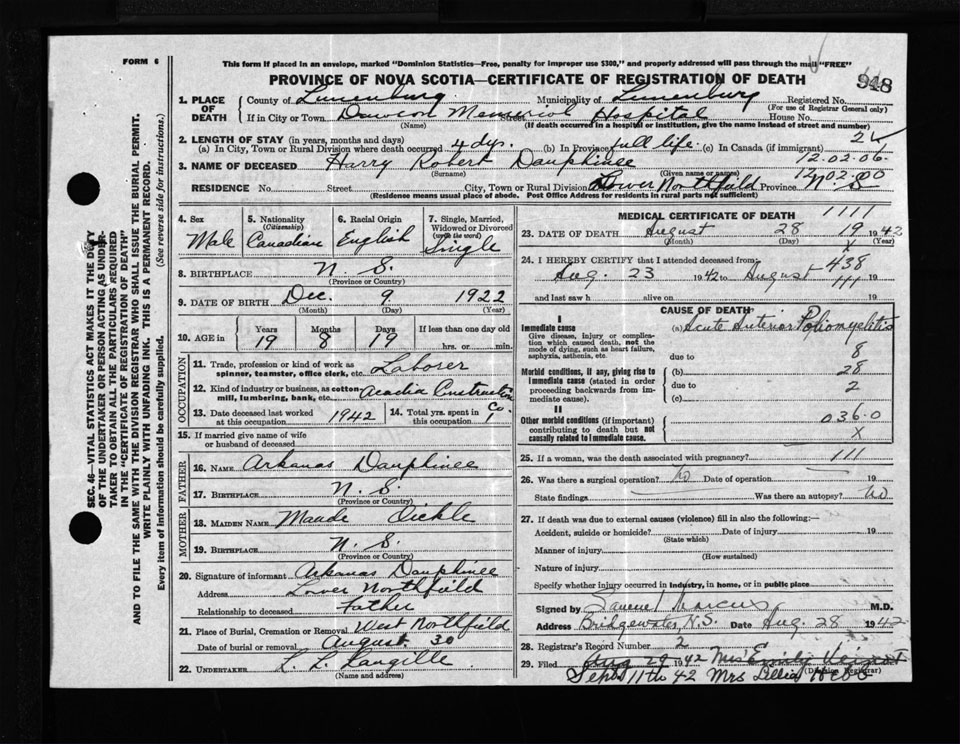 FORM 6
This form if placed in an envelope, marked "Dominion Statistics—Free, penalty for improper use $300," and properly addressed will pass through the mail "FREE"
PROVINCE OF NOVA SCOTIA—CERTIFICATE OF REGISTRATION OF DEATH
948
1. PLACE OF DEATH
County of Lunenburg Municipality of Lunenburg Registered No.
(For use of Registrar General only)
If in City or Town Dawson Memorial Hospital Street House No.
(Name) (If death occurred in a hospital or institution, give the name instead of street and number)
2. LENGTH OF STAY (in years, months and days)
(a) In City, Town or Rural Division where death occurred 4 dys. (b) In Province full life. (c) In Canada (if immigrant)
12.02.06.
3. NAME OF DECEASED Harry Robert Dauphinee
(Surname) (Given name or names)
12.02.00
RESIDENCE No. Street City, Town or Rural Division Lower Northfield Province N. S
(Residence means usual place of abode. Post Office Address for residents in rural parts not sufficient)
4. Sex
Male
5. Nationality
(Citizenship)
Canadian
6. Racial Origin
English
7. Single, Married, Widowed or Divorced
(write the word)
Single
8. BIRTHPLACE N. S.
(Province or Country)
9. DATE OF BIRTH Dec. 9 1922
(Month) (Day) (Year)
10. AGE in
Years Months Days If less than one day old
19 8 19 hrs. or min.
OCCUPATION
11. Trade, profession or kind of work as spinner, teamster, office clerk, etc. Laborer
12. Kind of industry or business, as cotton-mill, lumbering, bank, etc. Acadia Construction Co.
13. Date deceased last worked at this occupation 1942
14. Total yrs. spent in this occupation 1
15. If married give name of wife or husband of deceased
FATHER
16. NAME Arkanas Dauphinee
17. BIRTHPLACE N. S.
(Province or Country)
MOTHER
18. MAIDEN NAME Maude Oickle
19. BIRTHPLACE N. S.
(Province or Country)
20. Signature of informant Arkanas Dauphinee
Address Lower Northfield
Relationship to deceased Father
21. Place of Burial, Cremation or Removal West Northfield
Date of burial or removal August 30
22. UNDERTAKER L. L. Langille
(Name and address)
MEDICAL CERTIFICATE OF DEATH 1111
23. DATE OF DEATH August 28 1942
(Month) (Day) (Year)
X
24. I HEREBY CERTIFY that I attended deceased from:
438
Aug. 23 1942 to August 19
111
and last saw h alive on 19
CAUSE OF DEATH
I
Immediate cause
Give disease, injury or complication which caused death, not the mode of dying, such as heart failure, asphyxia, asthenia, etc.
(a) Acute Anterior Poliomyelitis
due to 8
Morbid conditions, if any, giving rise to immediate cause (stated in order proceeding backwards from immediate cause).
(b) 28
due to 2
(c) 6
II
Other morbid conditions (if important) contributing to death but not causally related to immediate cause.
036.0
X
25. If a woman, was the death associated with pregnancy? 111
26. Was there a surgical operation? No Date of operation 19
State findings Was there an autopsy? No
27. If death was due to external causes (violence) fill in also the following:—
Accident, suicide or homicide? Date of injury 19
(State which)
Manner of injury
(How sustained)
Nature of injury
Specify whether injury occurred in industry, in home, or in public place
Signed by Samuel Marcus M.D.
Address Bridgewater, N.S. Date Aug. 28 1942
28. Registrar's Record Number 2
29. Filed Aug 29 1942 Mrs Emily
(Division Registrar)
Sept 11th 42 Mrs
SEC. 46—VITAL STATISTICS ACT MAKES IT THE DUTY
OF THE UNDERTAKER OR PERSON ACTING AS UNDER-
TAKER TO OBTAIN ALL THE PARTICULARS REQUIRED
IN THE "CERTIFICATE OF REGISTRATION OF DEATH"
AND TO FILE THE SAME WITH THE DIVISION REGISTRAR WHO SHALL ISSUE THE BURIAL PERMIT.
WRITE PLAINLY WITH UNFADING INK. THIS IS A PERMANENT RECORD.
Every item of information should be carefully supplied. (See reverse side for instructions.)